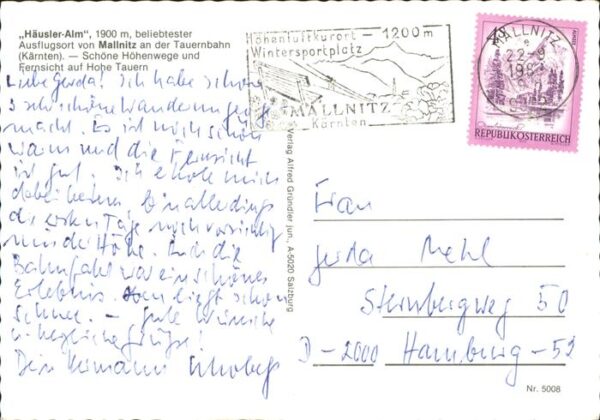 „Häusler-Alm", 1900 m, beliebtester
Ausflugsort von Mallnitz an der Tauernbahn
(Kärnten). — Schöne Höhenwege und
Fernsicht auf Hohe Tauern
Liebe Gerda! Ich habe schon
3 sehr schöne Wanderungen
macht. Es ist noch schön
warm und die Fernsicht
ist gut. Ich erhole mich
dabei bestens. Bin allerdings
die ersten Tage noch vorsichtig
mit der Höhe. Auch die
Bahnfahrt war ein schönes
Erlebnis. Oben liegt schon
Schnee. – Gute Wünsche
u. herzliche Grüße!
Dein Hermann
Höhenluftkurort – 1200 m
Wintersportplatz
MALLNITZ
Kärnten
MALLNITZ
22-9
REPUBLIK ÖSTERREICH
Verlag Alfred Gründler jun., A-5020 Salzburg
Frau
Gerda Mehl
Sternbergweg 50
D-2000 Hamburg-52
Nr. 5008